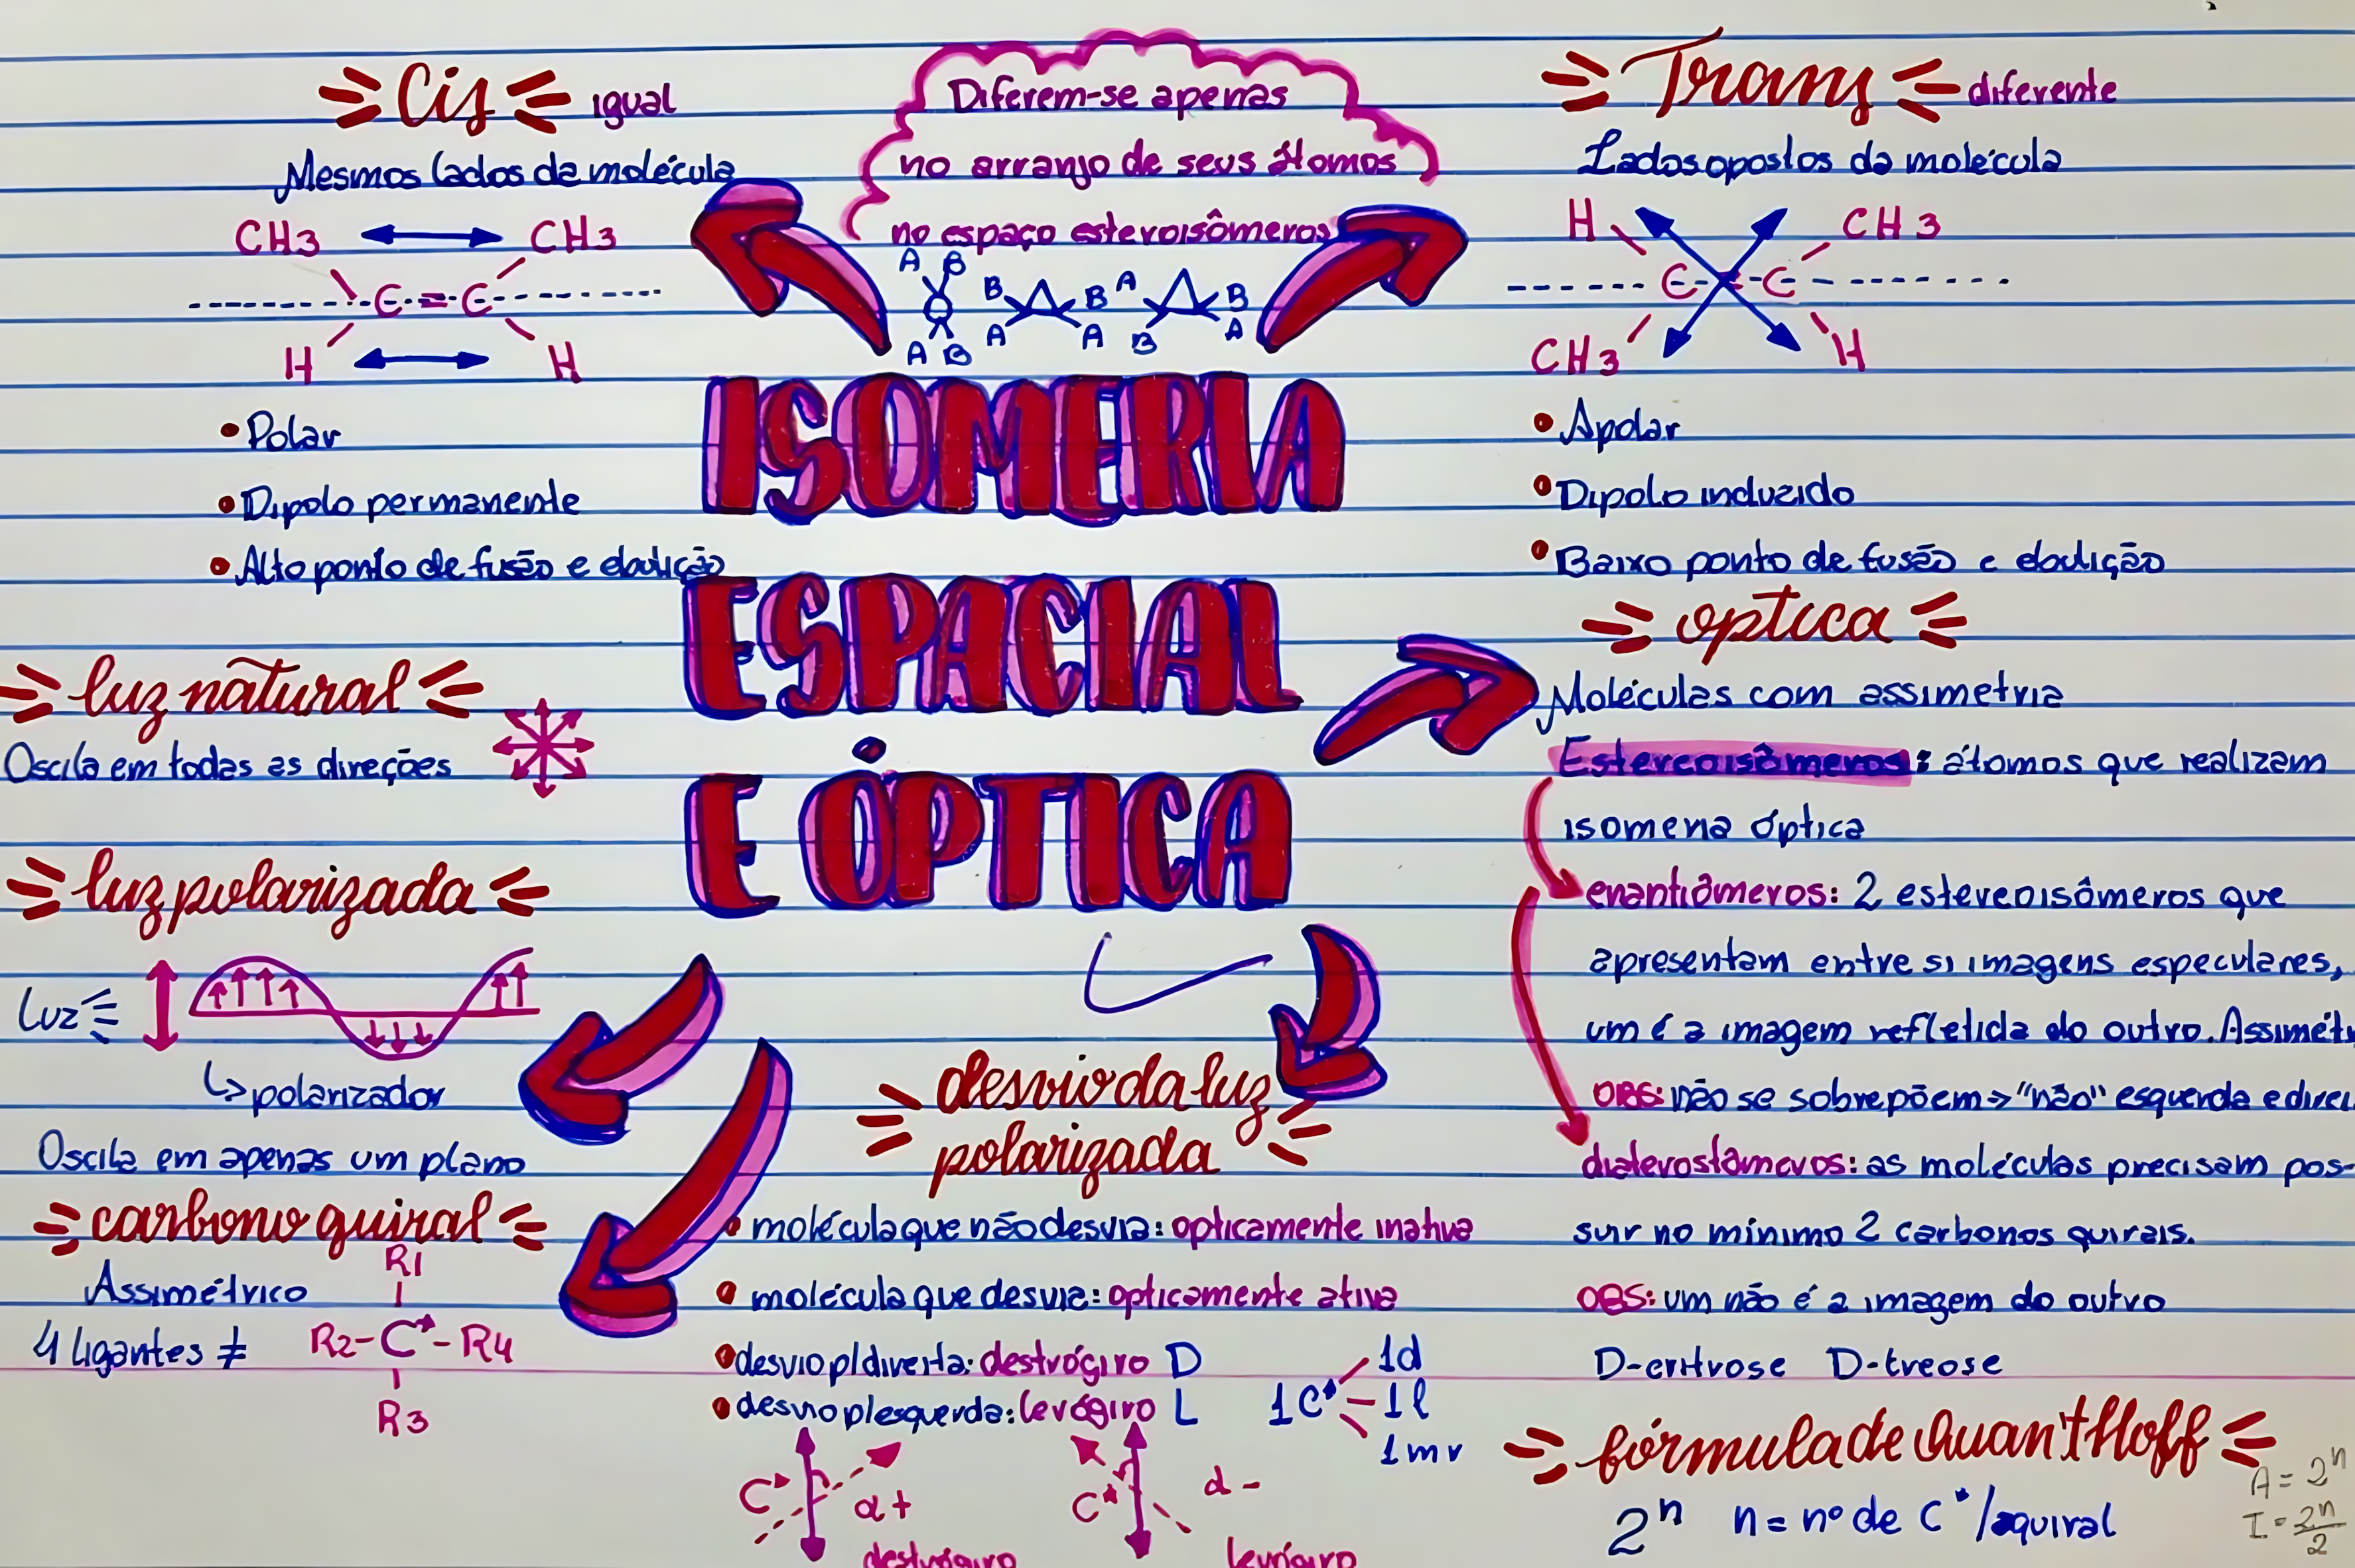 Cis igual
Mesmos lados da molécula
CH3 CH3
C = C
H H
• Polar
• Dipolo permanente
• Alto ponto de fusão e ebulição
Diferem-se apenas
no arranjo de seus átomos
no espaço estereoisômeros
A B
A B
B B
A A
A B
B A
Trans diferente
Lados opostos da molécula
H CH3
C = C
CH3 H
• Apolar
• Dipolo induzido
• Baixo ponto de fusão e ebulição
ISOMERIA
ESPACIAL
E ÓPTICA
luz natural
Oscila em todas as direções
luz polarizada
Luz
↳ polarizador
Oscila em apenas um plano
carbono quiral
Assimétrico
4 ligantes ≠
R1
R2-C*-R4
R3
desvio da luz
polarizada
• molécula que não desvia: opticamente inativa
• molécula que desvia: opticamente ativa
• desvio p/ direita: destrógiro D
• desvio p/ esquerda: levógiro L
1C*
1d
1l
1mr
C* α+
destrógiro
C* α-
levógiro
optica
Moléculas com assimetria
Estereoisômeros: átomos que realizam
isomeria óptica
enantiômeros: 2 estereoisômeros que
apresentam entre si imagens especulares,
um é a imagem refletida do outro. Assimét
OBS: não se sobrepõem → "não" esquerda e direi
diaterostâmeros: as moléculas precisam pos-
suir no mínimo 2 carbonos quirais.
OBS: um não é a imagem do outro
D-eritrose D-treose
fórmula de Quan't Hoff
2ⁿ n = nº de C*/aquiral
A = 2ⁿ
I = 2ⁿ/2